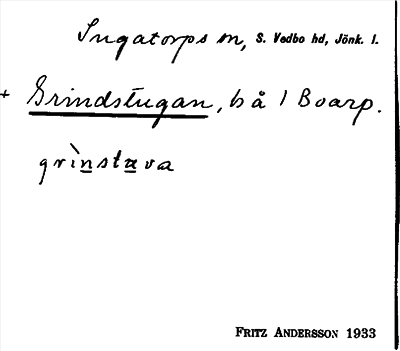 Ingatorps sn, S. Vedbo hd, Jönk. l.
+ Grindstugan, b å 1 Boarp.
grìnstuva
FRITZ ANDERSSON 1933